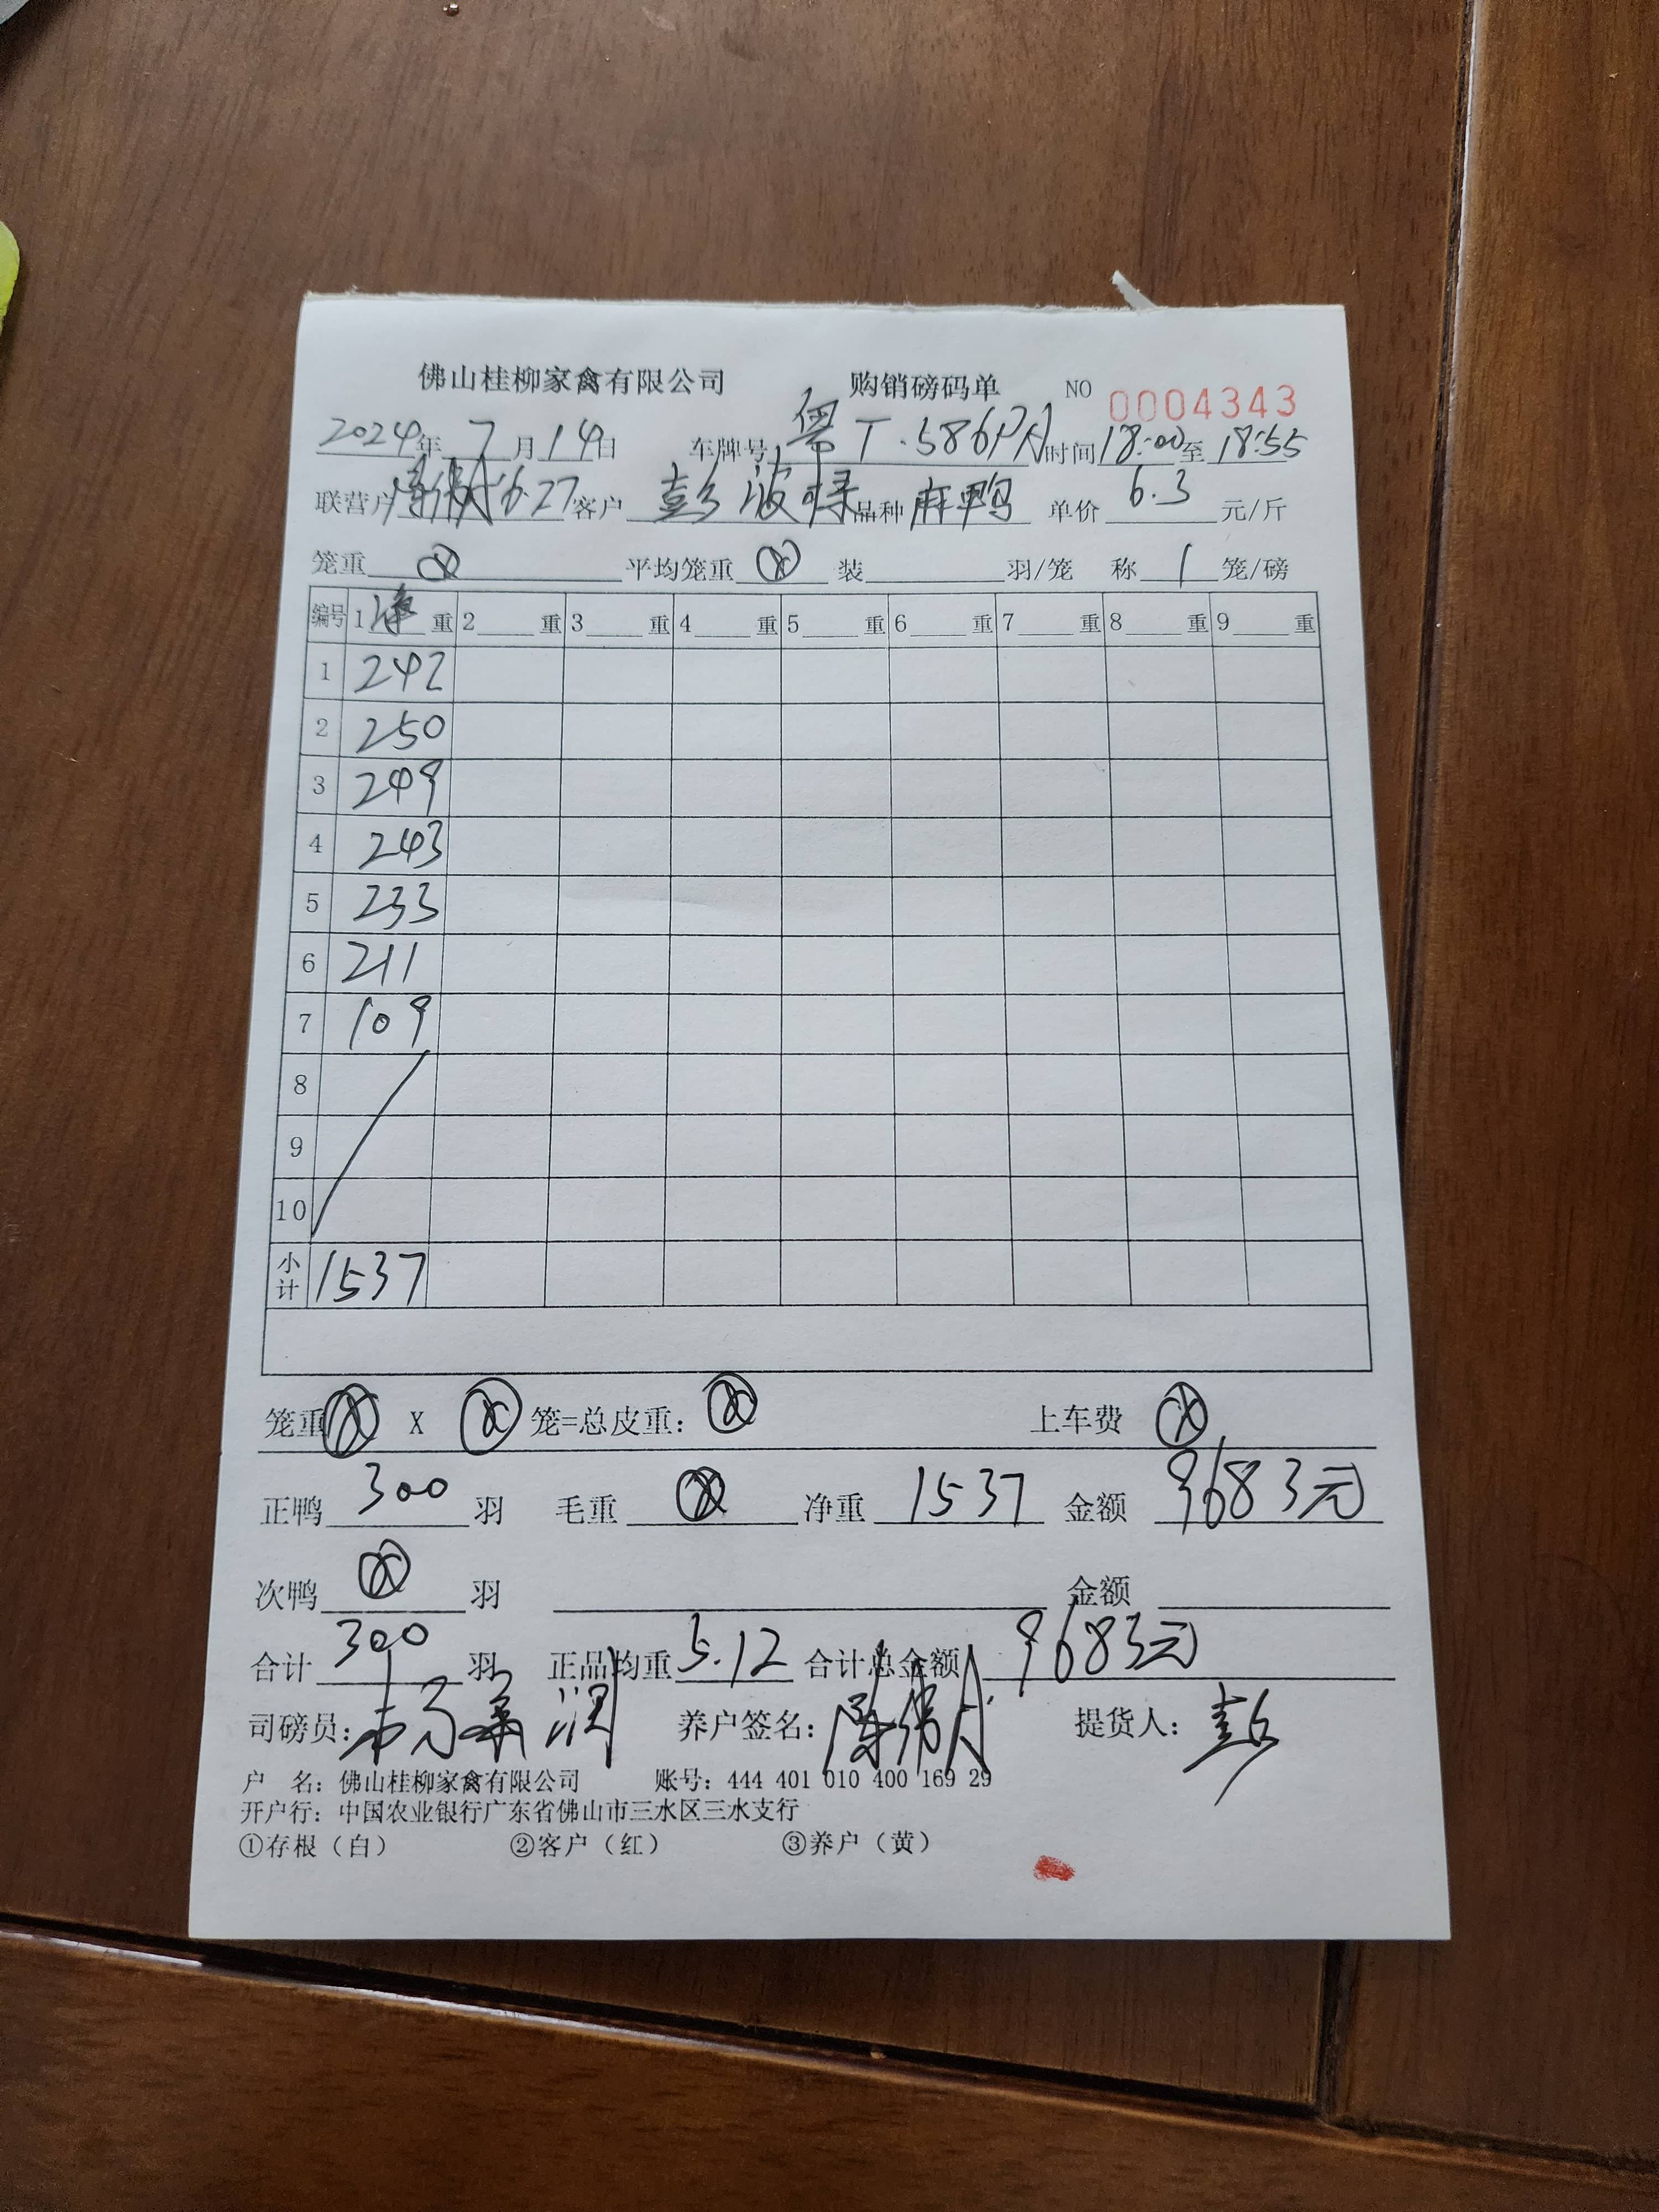 佛山桂柳家禽有限公司 购销磅码单 NO 0004343
2024年 7月14日 车牌号 粤T·586 时间18:00至18:55
联营户 6.27 客户 彭波 品种 麻鸭 单价 6.3 元/斤
笼重 平均笼重 装 羽/笼 称 1 笼/磅
编号 1净重 2 重 3 重 4 重 5 重 6 重 7 重 8 重 9 重
1 242
2 250
3 249
4 243
5 233
6 211
7 109
8
9
10
小计 1537
笼重 X 笼=总皮重: 上车费
正鸭 300 羽 毛重 净重 1537 金额 9683元
次鸭 羽 金额
合计 300 羽 正品均重 5.12 合计总金额 9683元
司磅员: 养户签名: 提货人: 彭
户 名: 佛山桂柳家禽有限公司 账号: 444 401 010 400 169 29
开户行: 中国农业银行广东省佛山市三水区三水支行
①存根（白） ②客户（红） ③养户（黄）